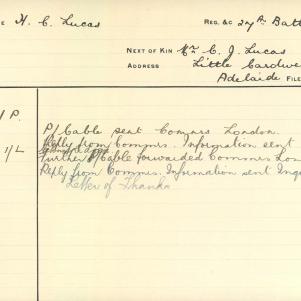 E H. C. Lucas REG. &C 27th Batt
NEXT OF KIN Mr C. J. Lucas
ADDRESS Little Cardwe
Adelaide FILE
P.
P/Cable sent Comnrs London.
Reply from Commrs. Information sent
1/L Further P/Cable forwarded Commrs Lon
Reply from Commrs. Information sent Inq
Letter of Thanks